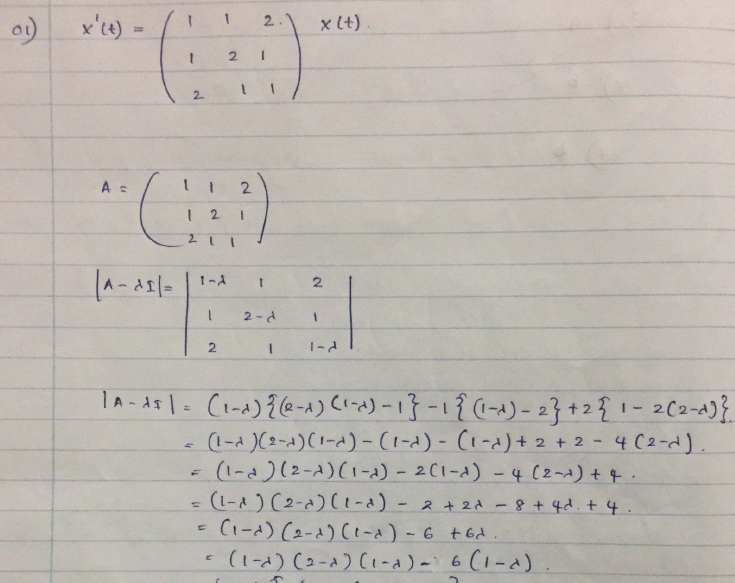 01) x'(t) = ( 1 1 2 x(t).
1 2 1
2 1 1 )
A = ( 1 1 2
1 2 1
2 1 1 )
|A - λI| = | 1-λ 1 2
1 2-λ 1
2 1 1-λ |
|A - λI| = (1-λ){(2-λ)(1-λ) - 1} - 1{(1-λ) - 2} + 2{1 - 2(2-λ)}
= (1-λ)(2-λ)(1-λ) - (1-λ) - (1-λ) + 2 + 2 - 4(2-λ).
= (1-λ)(2-λ)(1-λ) - 2(1-λ) - 4(2-λ) + 4.
= (1-λ)(2-λ)(1-λ) - 2 + 2λ - 8 + 4λ. + 4.
= (1-λ)(2-λ)(1-λ) - 6 + 6λ.
= (1-λ)(2-λ)(1-λ) - 6(1-λ).